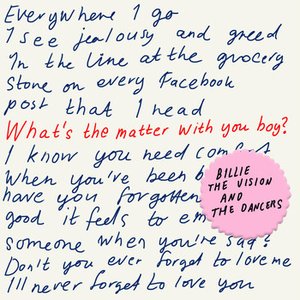 Everywhere I go
I see jealousy and greed
In the line at the grocery
store on every Facebook
post that I read
What's the matter with you boy?
I know you need comfort
When you've been b
have you forgotten
good it feels to em
someone when you're sad?
Don't you ever forget to love me
I'll never forget to love you
BILLIE
THE VISION
AND
THE DANCERS